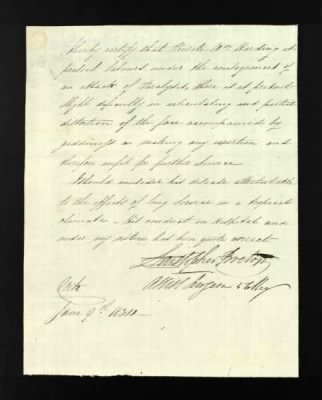 I hereby certify that Private Wm Harding at
present labours under the consequences of
an attack of Paralysis, there is at present
slight difficulty in articulating and partial
distortion of the face accompanied by
giddiness on making any exertion and
therefore unfit for further Service
I should consider his disease attributable
to the effects of long Service in a tropical
climate – His conduct in Hospital and
under my notice has been quite correct
Christopher
Asst Surgeon
Cork
June 9th